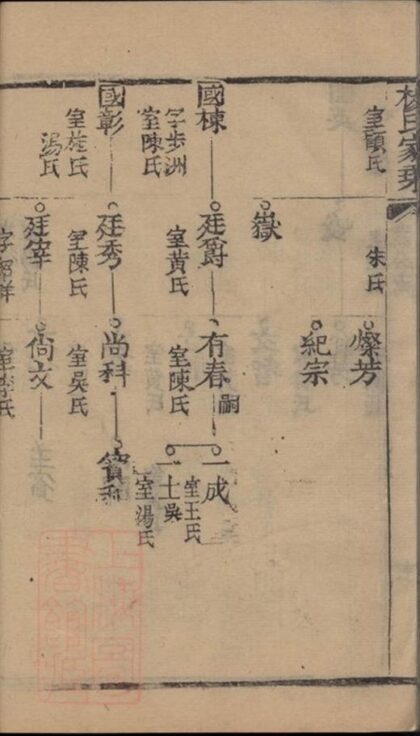 氏家乘
室顧氏
朱氏
燦芳
紀宗
嶽
國棟
字步洲
室陳氏
廷爵
室黃氏
有春
嗣
室陳氏
一成
室王氏
一士吳
室湯氏
國彰
室施氏
湯氏
廷秀
室陳氏
尚科
室吳氏
廷宰
尚文
室李氏